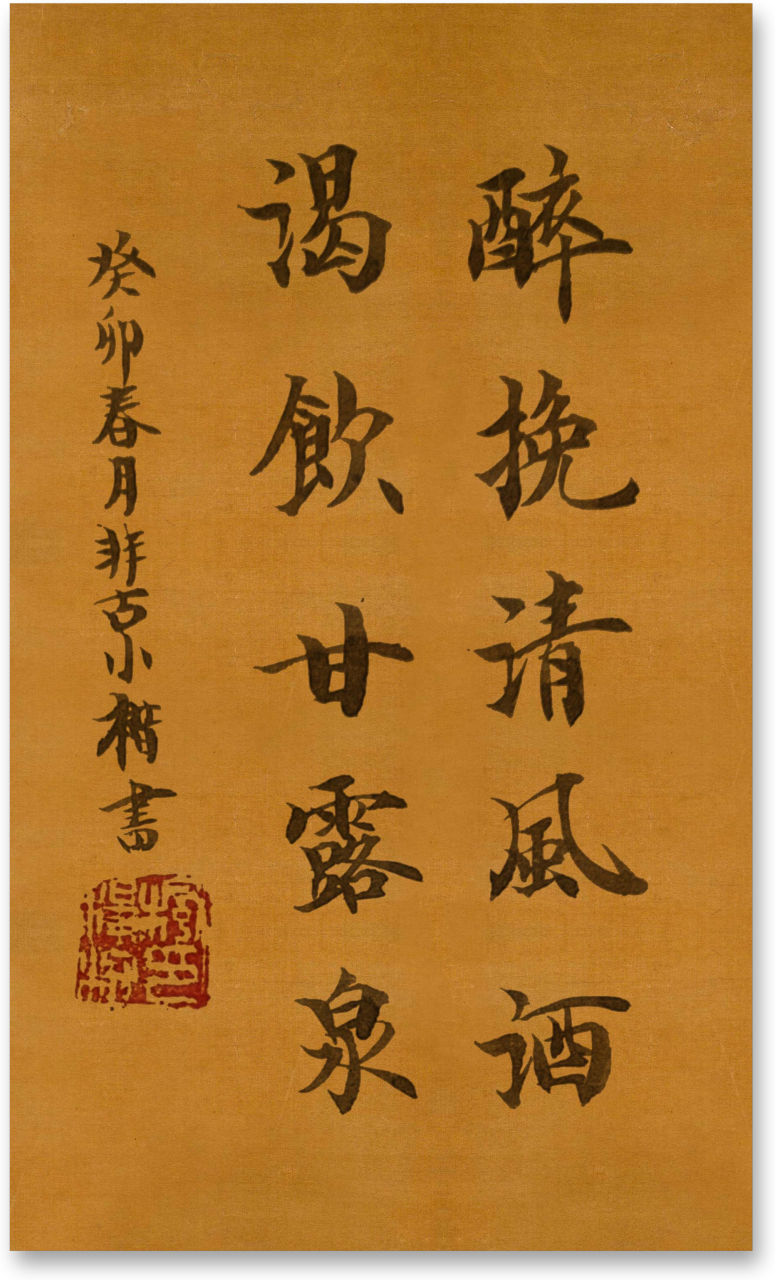 醉挽清風酒
渴飲甘露泉
癸卯春月非古小楷書